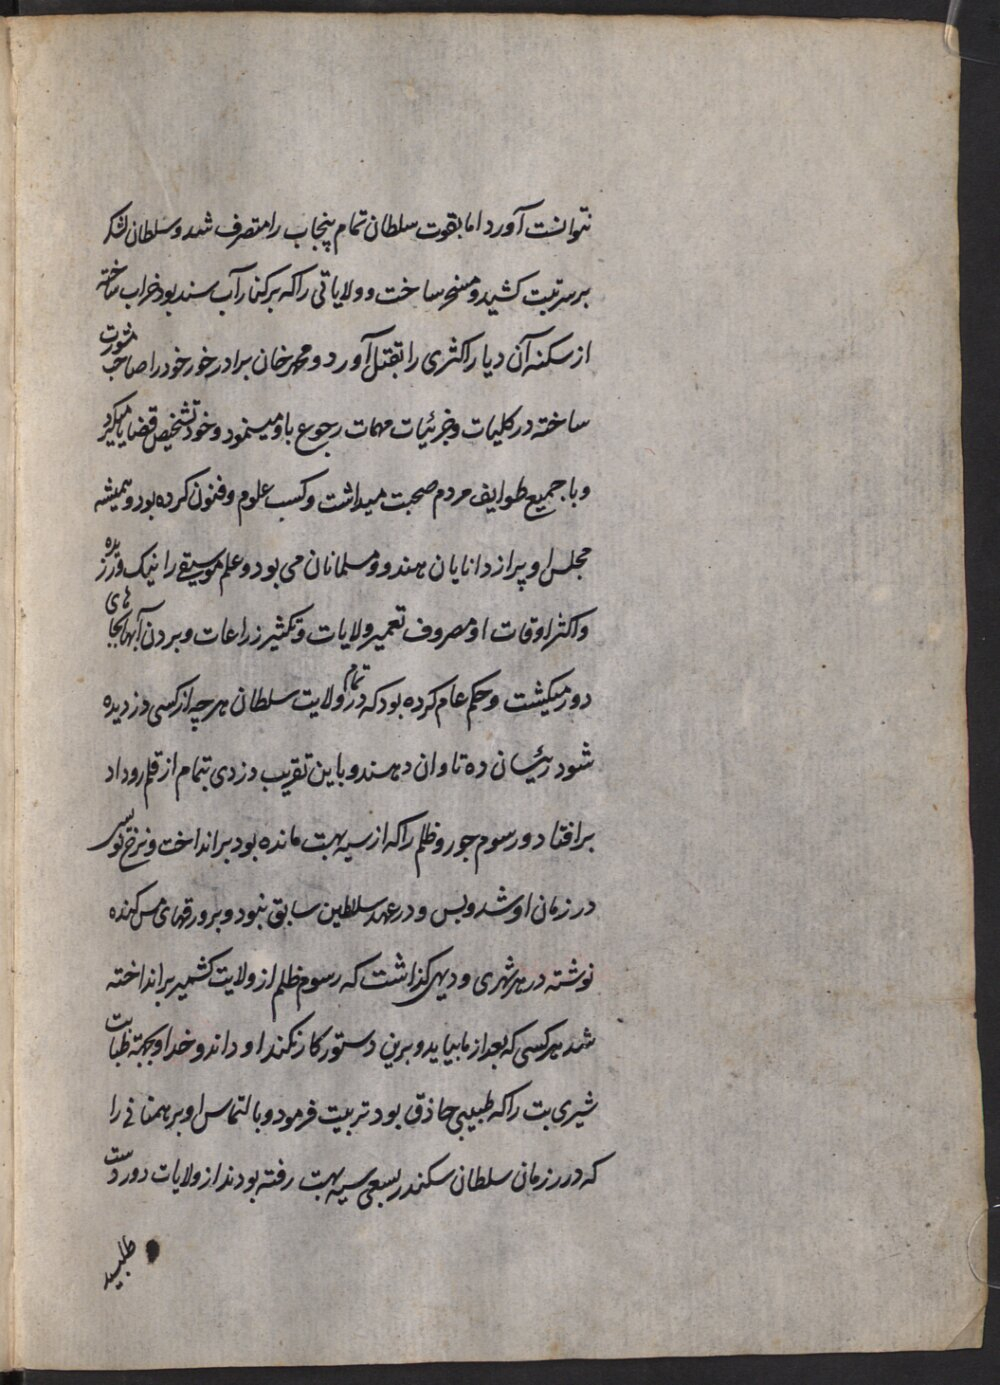 نتوانست آورد اما بقوت سلطان تمام پنجاب را متصرف شد و سلطان لشکر
بر سر تبت کشید و مسخر ساخت و ولایاتی را که بر کنار آب سند بود خراب ساخته
از سکنه آن دیار اکثری را بقتل آورد و محمد خان برادر خورد خود را صاحب مشورت
ساخته در کلیات و جزئیات مهمات رجوع باو مینمود و خود تشخیص قضایا میکرد
و با جمیع طوایف مردم صحبت میداشت و کسب علوم و فنون کرده بود و همیشه
مجلس او پر از دانایان هندو و مسلمانان می بود و علم موسیقی را نیک ورزیده
و اکثر اوقات او مصروف تعمیر ولایات و تکثیر زراعات و بردن آبها بجا های
دور میگشت و حکم عام کرده بود که در تمام ولایت سلطان هر چه از کسی دزدیده
شود رئیسان ده تاوان دهند و باین تقریب دزدی بتمام از قلم رو داد
بر افتاد و رسوم جور و ظلم را که از سیه بهت مانده بود بر انداخت و نرخ نویسی
در زمان او شد و بس و در عهد سلاطین سابق نبود و بر ورقهای مس کنده
نوشته در هر شهری و دیهی گذاشت که رسوم ظلم از ولایت کشمیر بر انداخته
شد هر کسی که بعد از ما بیاید و برین دستور کار نکند او داند و خدا و بجهته طبابت
شیری بت را که طبیبی حاذق بود تربیت فرمود و بالتماس او برهمنانی را
که در زمان سلطان سکندر بسعی سیه بهت رفته بودند از ولایات دور دست
طلبید